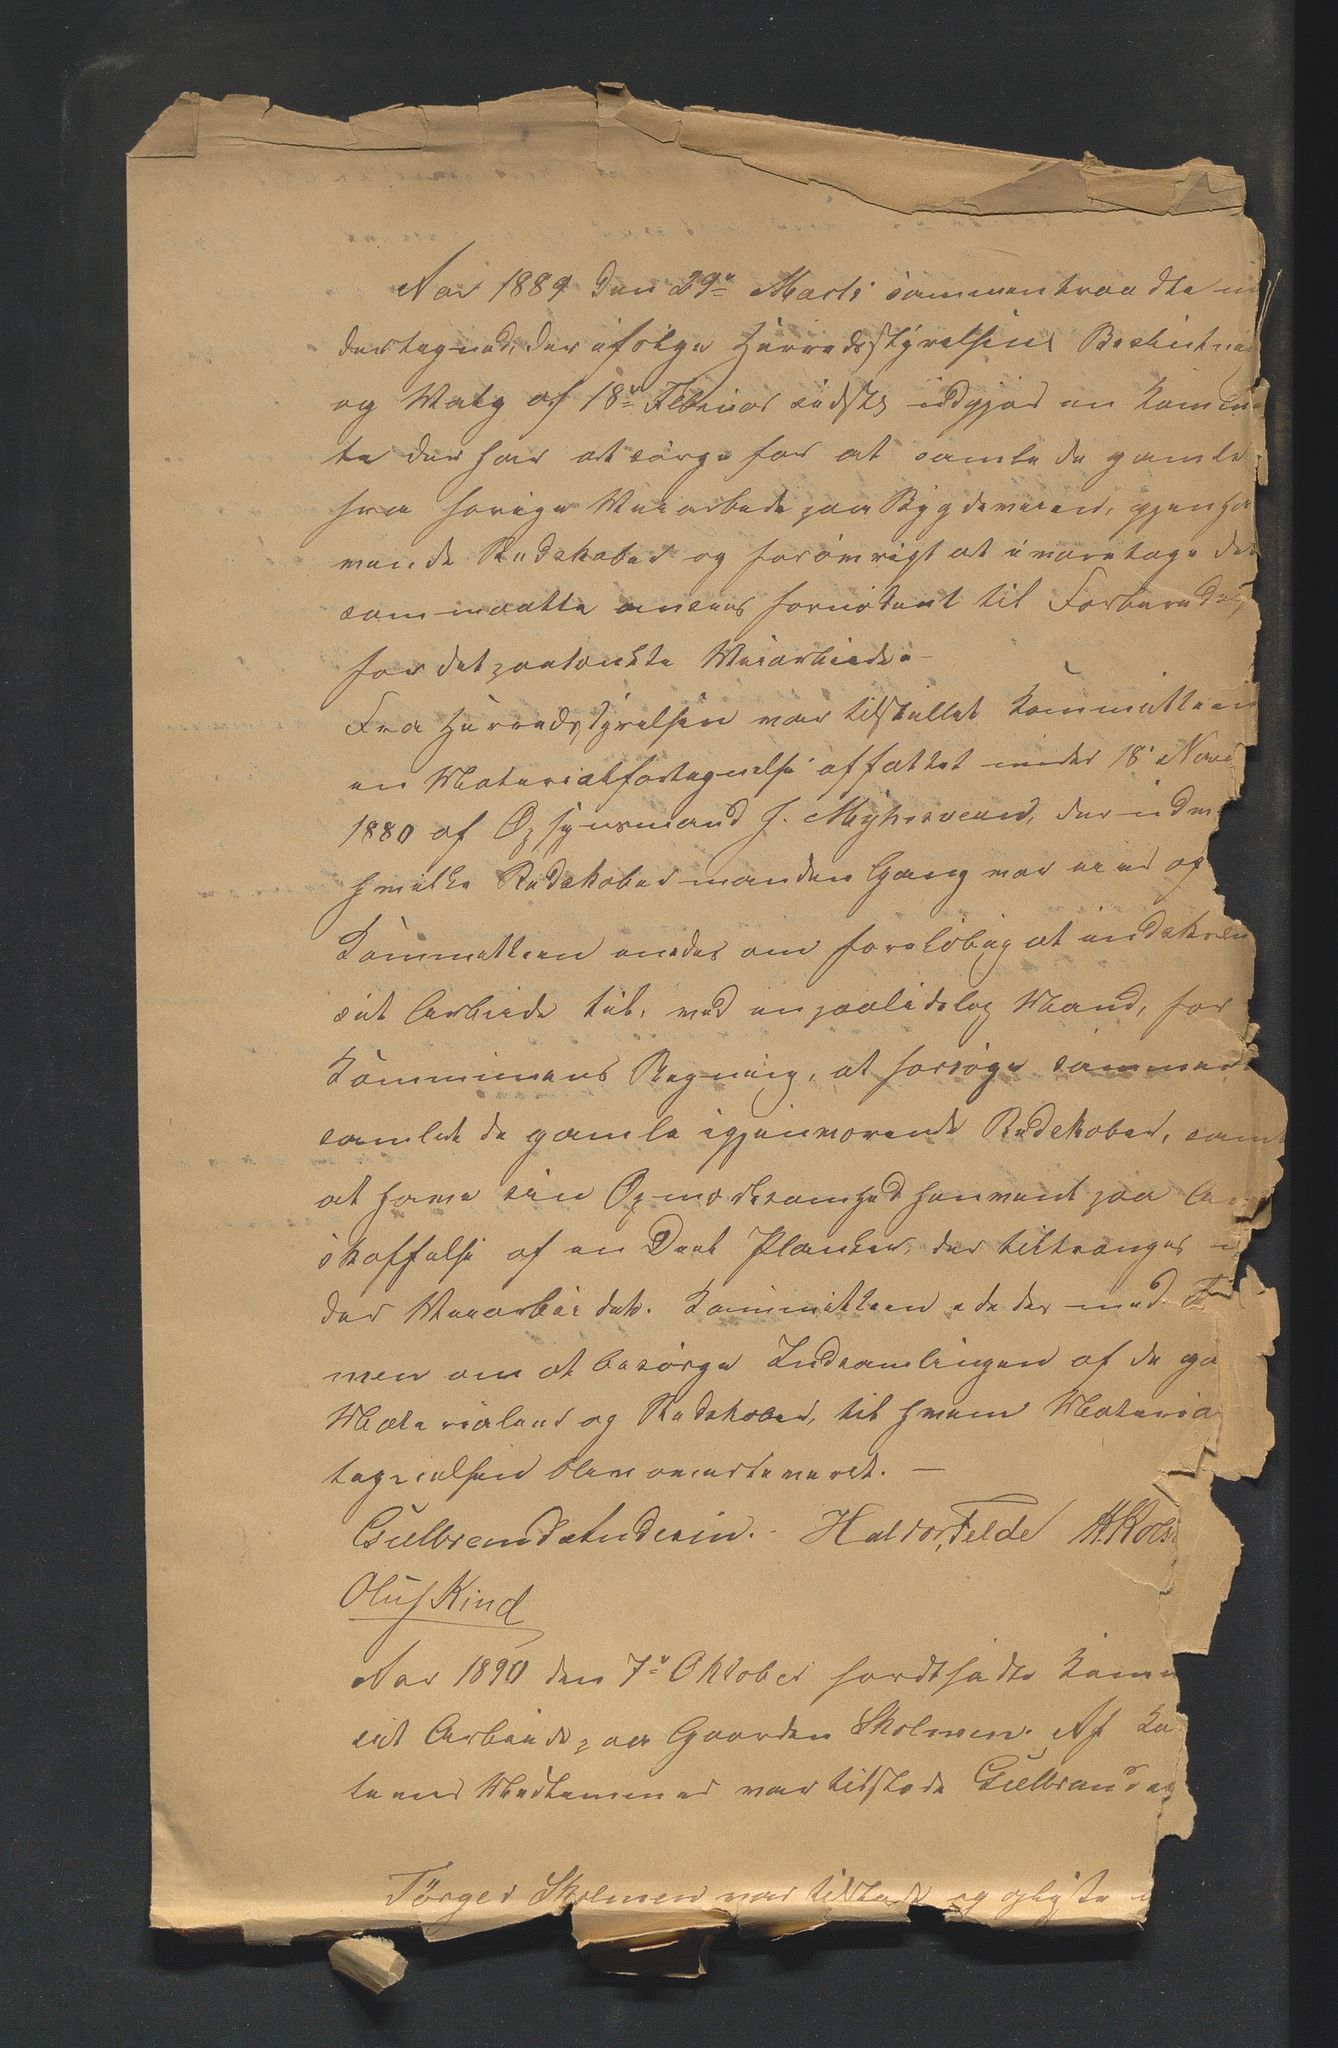 Aar 1889 den 29de Marts sammentraadte
dertegned, der ifølge Herredsstyrelsens Beslutning
og Valg af 18de Februar sidste udgjør en
te der har at sørge for at samle de gamle
fra forige Veiarbeide paa Bygdeveien, gjenha
vende Redskaber og forøvrigt at ivaretage det
som maatte ansees fornødent til
for det paatænkte Veiarbeide. –
Fra Herredsstyrelsen var tilstillet Kommitteen
en Materialfortegnelse affattet under 18 Novb
1880 af Opsynsmand J. Myhrsveen, der
hvilke Redskaber manden Gang var eier
Kommitteen enedes om foreløbig at indskræn
sit Arbeide til, ved en paalidelig Mand, for
Kommunens Regning, at forsøge sammen
samlet de gamle igjenværende Redskaber, samt
at have sin Opmærksomhed henvent paa An
skaffelse af en Deel Planker, der tiltrænges
der Veiarbeidet. Kommitteen ededes med
men om at besørge Indsamlingen af de ga
Materialier og Redskaber, til hvem Materia
tegnelsen blev overleveret. –
Gulbrand Andersen. Halvor Felde
Oluf Kind
Aar 1890 den 7de Oktober fordtsadte Komm
sit Arbeide paa Gaarden Skolmen. Af Ko
teens Medlemmer var tilstede Gulbrand
Törger Skolmen var tilstede og oplyste